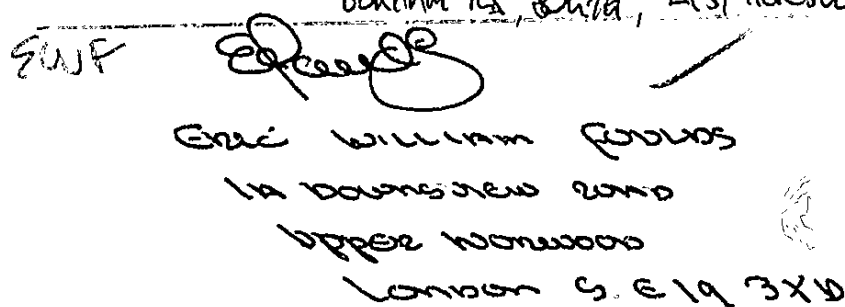 EWF
ERIC WILLIAM FOULDS
1A DOWNSVIEW ROAD
UPPER NORWOOD
LONDON S.E 19 3XD